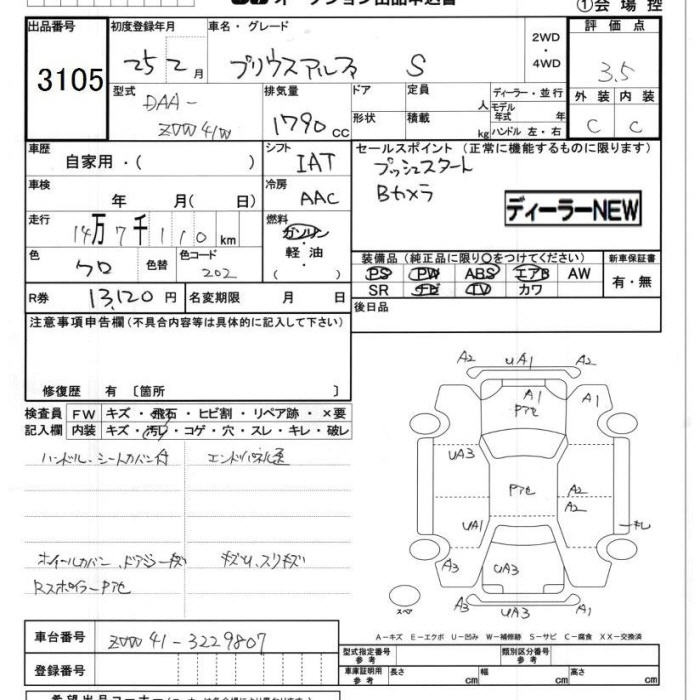 オークション出品申込書
①会場控
出品番号 初度登録年月 車名・グレード 2WD ・ 4WD 評価点
3105 25 2月 プリウスアルファ S 3.5
型式 DAA- ZVW41W 排気量 1790cc ドア 定員 人 ディーラー・並行 外装 内装
形状 積載 kg モデル年式 年式 ハンドル 左・右 C C
車歴 自家用・( ) シフト IAT セールスポイント (正常に機能するものに限ります)
プッシュスタート
車検 年 月( 日) 冷房 AAC Bカメラ
ディーラーNEW
走行 14万7千110km 燃料 ガソリン・軽油・( )
色 クロ 色替 色コード 202 装備品 (純正品に限り○をつけてください) 新車保証書
PS PW ABS エアB AW 有・無
R券 13,120円 名変期限 月 日 SR TV カワ
注意事項申告欄(不具合内容等は具体的に記入して下さい) 後日品
修復歴 有 〔箇所 〕
検査員 FW キズ・飛石・ヒビ割・リペア跡・×要
記入欄 内装 キズ・汚レ・コゲ・穴・スレ・キレ・破レ
ハンドル、シートカバー付 エンドパネル歪
ホイールカバー、ドアミラーキズ キズU、スリキズ
RスポイラーPアセ
A2 UA1 A2
A1 Pアセ A1
UA3
Pアセ A2
A2
UA1
A3 UA3 A3
A2 UA3 A1
スペア
A-キズ E-エクボ U-凹み W-補修跡 S-サビ C-腐食 XX-交換済
車台番号 ZVW41-3229807 型式指定番号 参考 類別区分番号 参考
登録番号 車庫証明用 参考 長さ cm 幅 cm 高さ cm